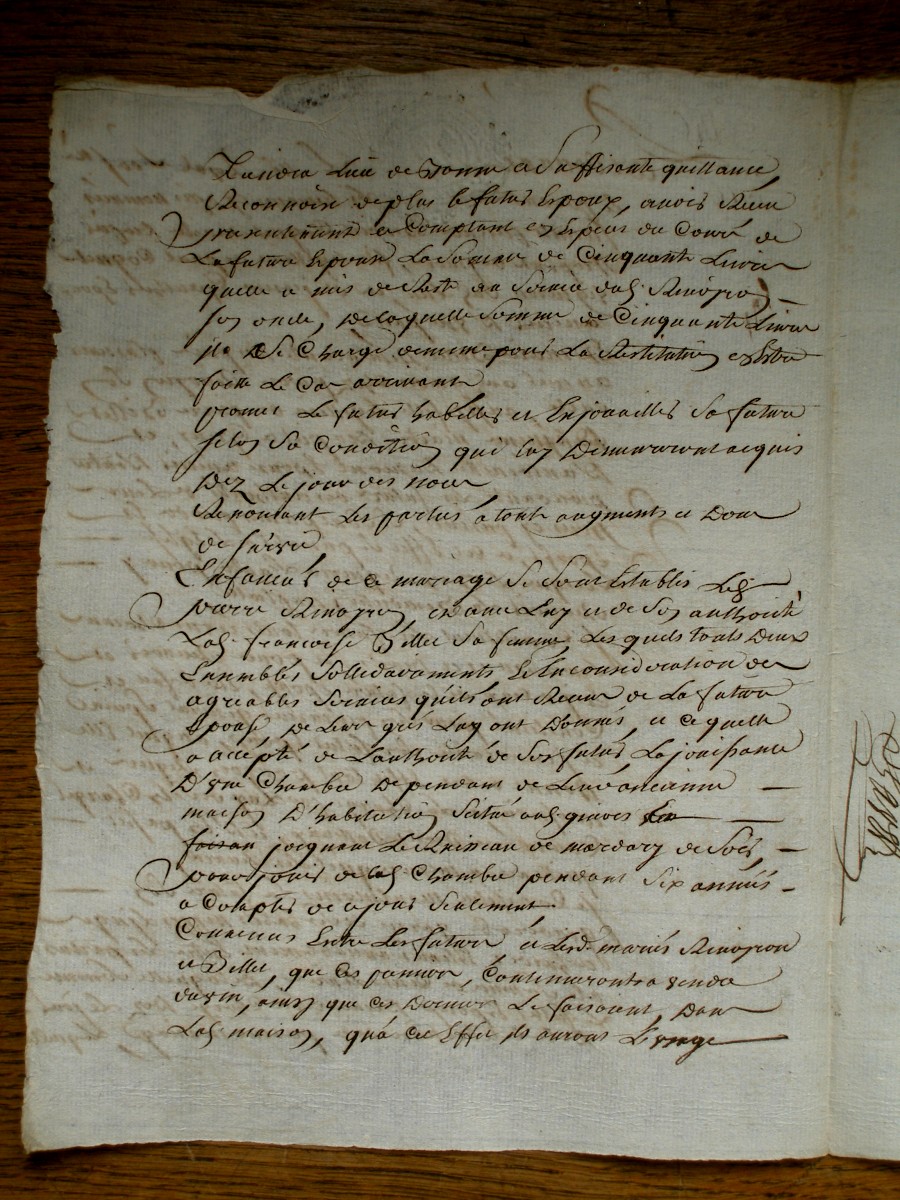 Tiendra Lieu de Bonne et Suffisante quittance
Reconnoist de plus le futur Epoux, avoir Reçu
presentement et Comptant en Especes du Cours de
La future Epouse La Somme de Cinquante Livres
quelle a mis de Reste en Service dud.
son oncle, De laquelle Somme de Cinquante Livres
il Se Charge de meme pour La Restitution en Estre
faitte Le Cas arrivant
promet Le futur habiller et Enjoueller Sa future
selon Sa Condition qui luy Demeureront acquis
Dez Le jour des noces
Renonçant Les parties a tout augment et Don
de Survie
En faveur de ce mariage Se Sont Establis Led.
pierre et avec Luy et de Son authorité
Lad. francoise Billet Sa femme, Lesquels touts Deux
Ensembles Sollidairements Et En consideration des
agreables Services quils ont Reçus de La future
Epouse, de Leur grés Luy ont Donnés, et ce quelle
a accépté de L'authorité de Son futur, La jouissance
D'une Chambre Dependant de Leur ancienne
maison D'habitation Scituée aud. gieres
faisan joignant Le Ruisseau de de Soir,
pour jouir de lad. Chambre pendant Six années
a Compter de ce jour Seulement.
Convenus Entre Les futurs et Lesd. mariés
et Billet, que Ces premiers, Continueront a vendre
du vin, ainsy que ces Derniers Le faisoient, Dans
Lad. maison, qu'a cet Effet ils auront L'usage